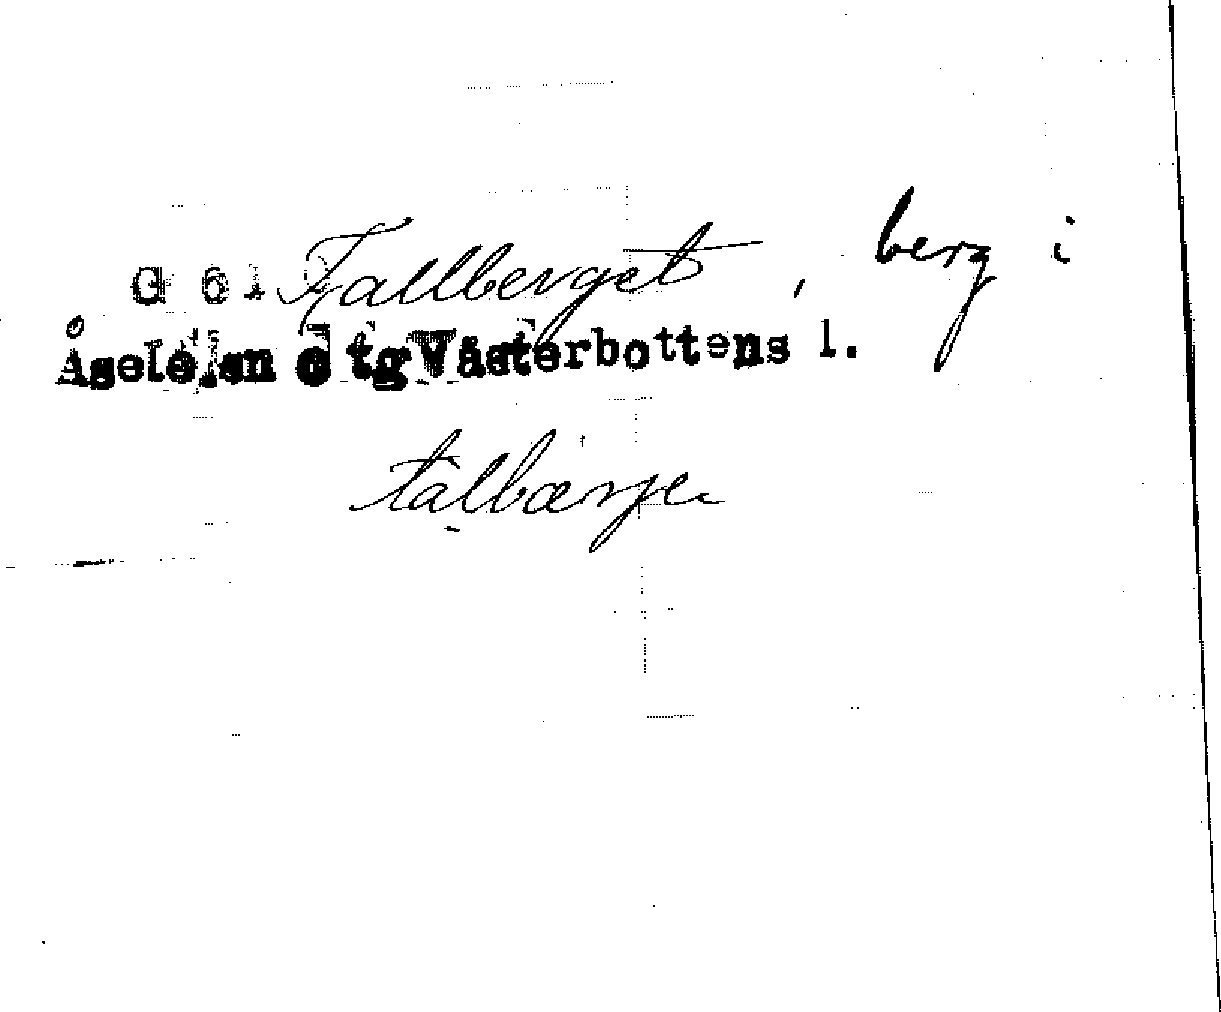 G 61 Tallberget, berg i
Åsele sn o tg Västerbottens l.
tàlbærje